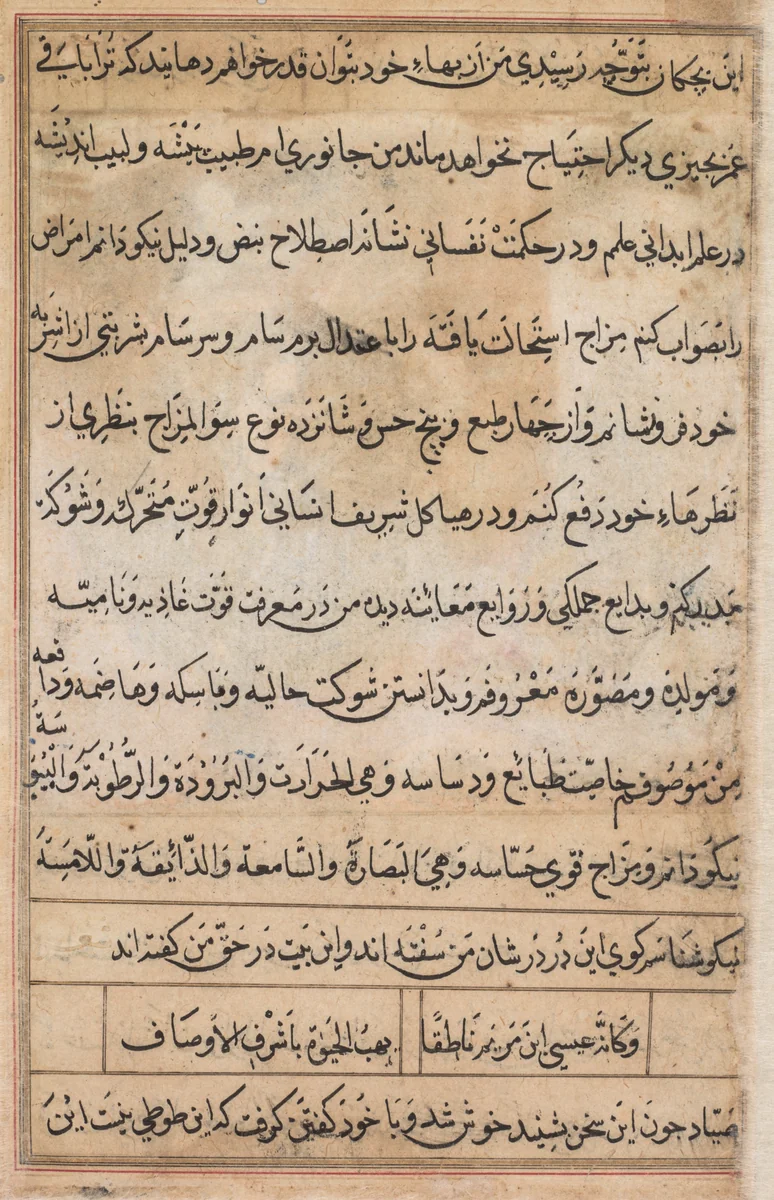 این بچکان بتوجه رسیدی من از بهاء خود بتوان قدر خواهم دهانید که ترا باقی
عمر بچیزی دیکر احتیاج نخواهد ماند من جانوری ام طبیب پیشه و لبیب اندیشه
در علم ابدانی علمم و در حکمت نفسانی نشانه اصطلاح نبض و دلیل نیکو دانم امراض
را بصواب کنم مزاج استحالت یافته را با عتدال برم سام و سرسام بشربتی از اشربه
خود فرو نشانم و از چهار طبع و پنج حس و شانزده نوع سؤ المزاج بنظری از
نظرهاء خود دفع کنم و در هیاکل شریف انسانی انوار قوت متحرک و
تدبیر کنم و بدایع جملکی و روایع معاینه دیده من در معرفت قوت غاذیه و نامیه
و مولده و مصوره معروفم و بدانستن شوکت حالیه و ماسکه و هاضمه و دافعه
من موصوفم خاصیت طبائع و دساسه و هی الحرارت والبرودة والرطوبة والیبوسة
نیکو دانم و مزاج قوی حساسه و هی البصارة والسامعة والذائقة واللامسة
نیکو شناسم کوی این در در شان من سفته اند و این بیت در حق من کفته اند
وکانه عیسی ابن مریم ناطقا یهب الحیوة باشرف الاوصاف
صیاد جون این سخن بشنید خوش شد و با خود کفتن کرفت که این طوطی نیست این